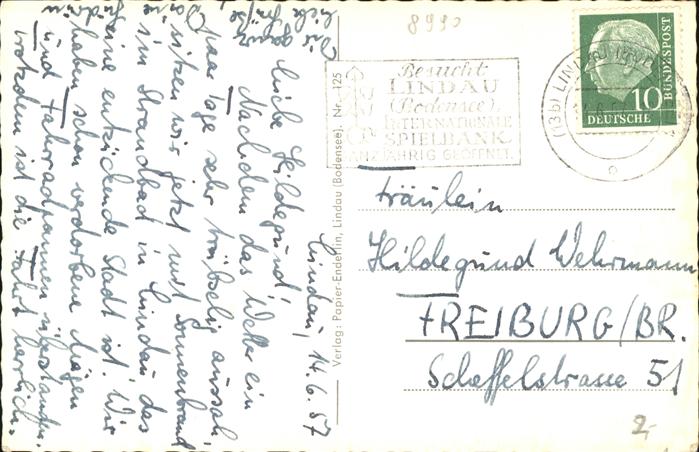 Lindau, 14.6.57
Liebe Hildegund!
Nachdem das Wetter ein
paar Tage sehr trübselig aussah
sitzen wir jetzt mit Sonnenbrand
im Strandbad in Lindau, das
eine entzückende Stadt ist. Wir
haben schon verdorbene Mägen
und Fahrradpannen überstanden,
trotzdem ist die Fahrt herrlich.
Dir ganz
liebe Grüße
Verlag: Papier-Enderlin, Lindau (Bodensee). Nr. 125
8990
Besucht
LINDAU
(Bodensee)
INTERNATIONALE
SPIELBANK
GANZJÄHRIG GEÖFFNET
(13b) LINDAU
10
DEUTSCHE
BUNDESPOST
Fräulein
Hildegund Wehrmann
FREIBURG/BR.
Scheffelstrasse 51
2,-